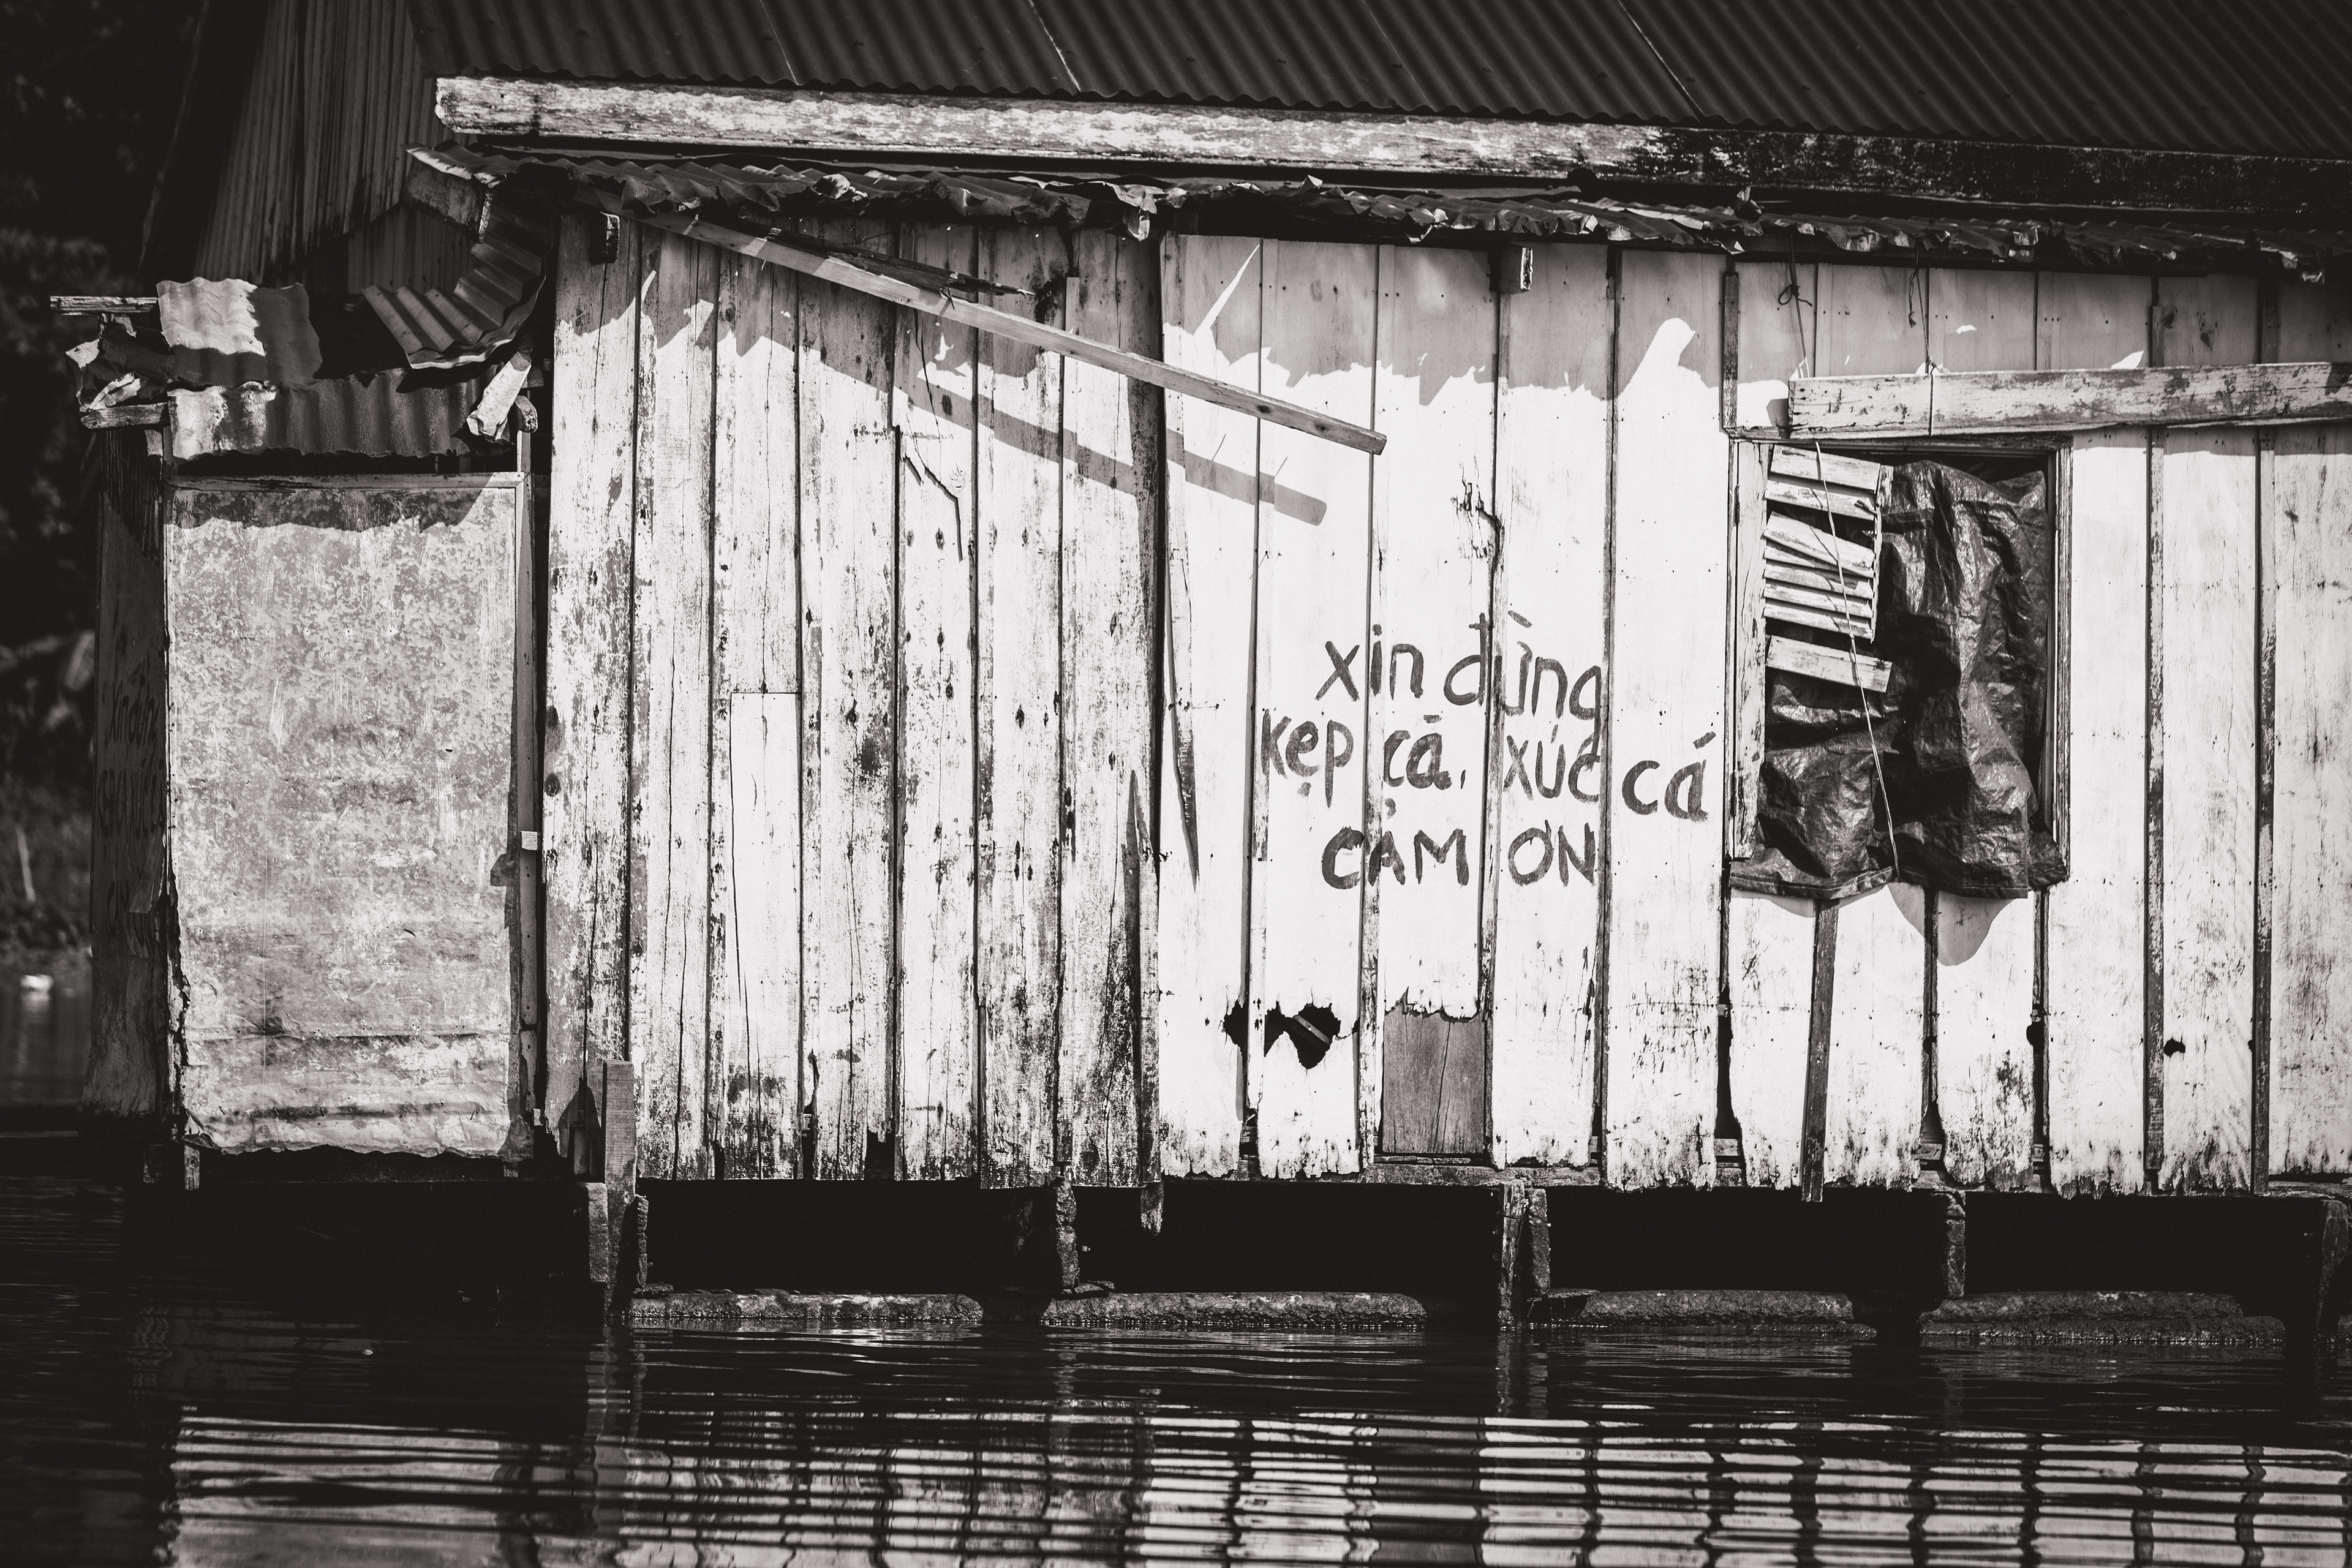 xin đừng
kẹp cá, xúc cá
CẢM ƠN